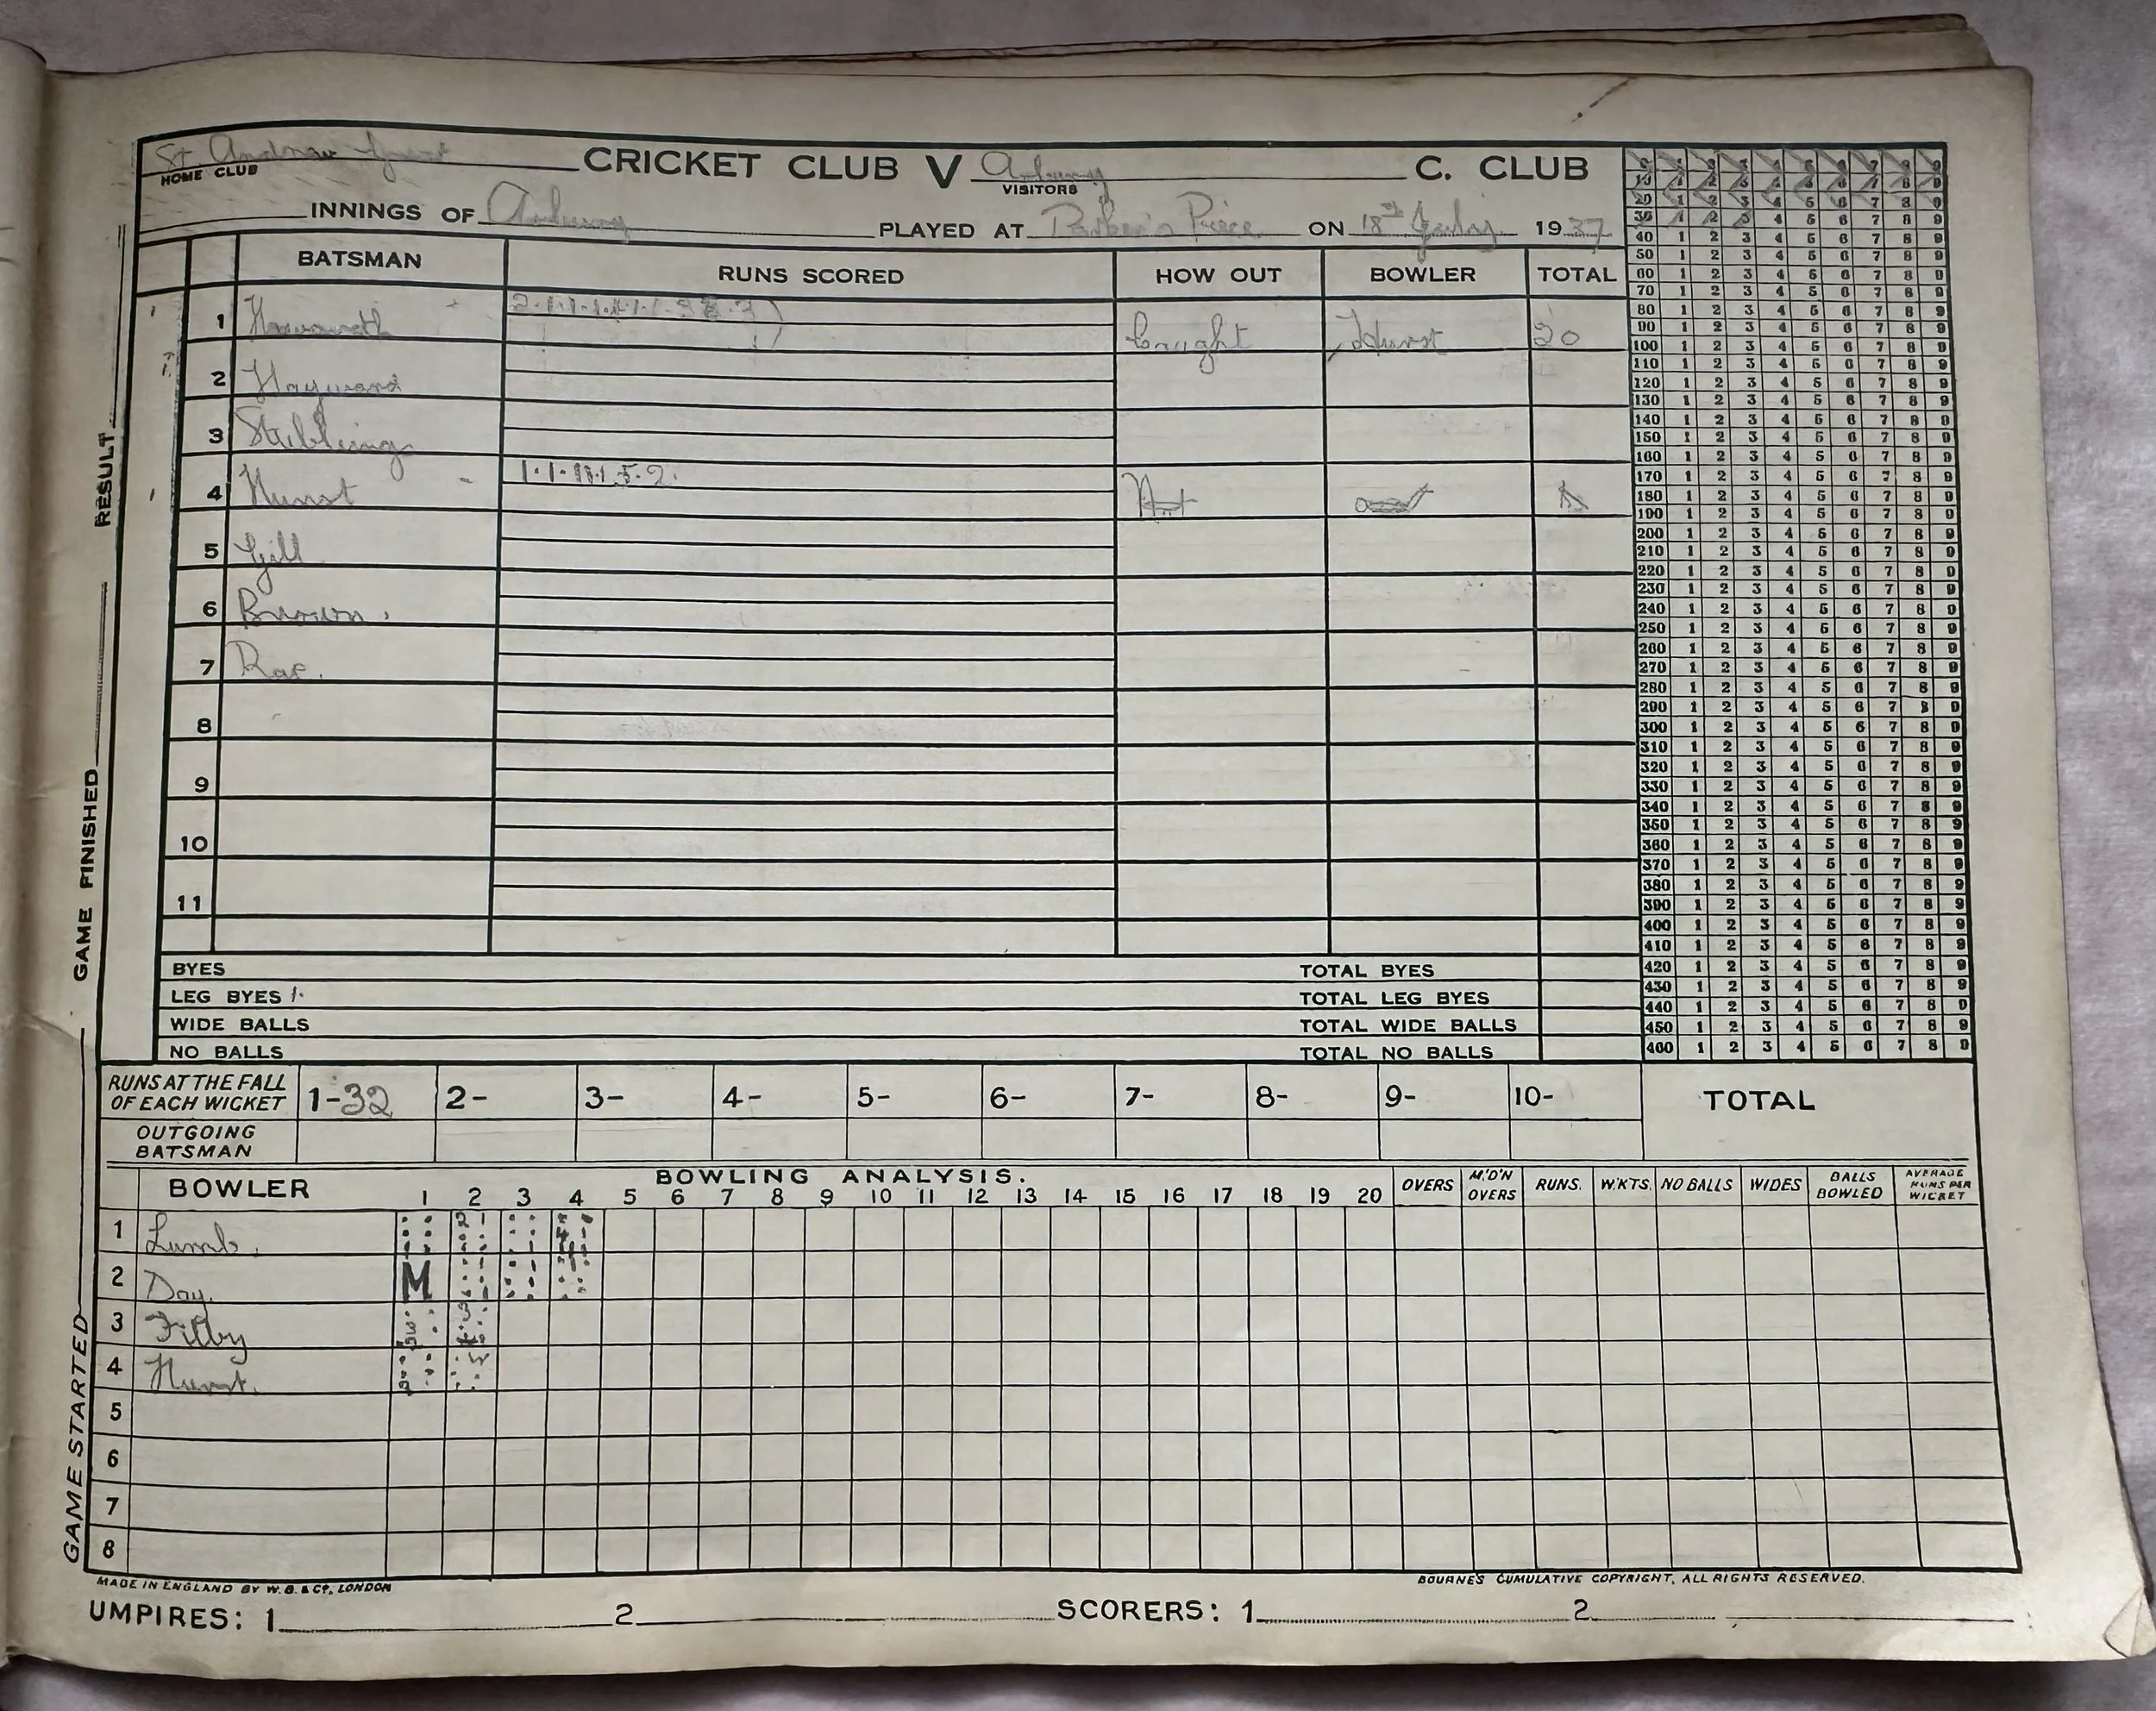 St. Andrew CRICKET CLUB V C. CLUB
HOME CLUB VISITORS
INNINGS OF PLAYED AT Parker's Piece ON 18th July 1937
BATSMAN RUNS SCORED HOW OUT BOWLER TOTAL
1 Howarth Caught Hurst 20
2 Hayward
3 Stubbings
4 Hurst Not out
5 Gill
6 Brown.
7 Rae.
8
9
10
11
BYES TOTAL BYES
LEG BYES 1. TOTAL LEG BYES
WIDE BALLS TOTAL WIDE BALLS
NO BALLS TOTAL NO BALLS
10 1 2 3 4 5 6 7 8 9
20 1 2 3 4 5 6 7 8 9
30 1 2 3 4 5 6 7 8 9
40 1 2 3 4 5 6 7 8 9
50 1 2 3 4 5 6 7 8 9
60 1 2 3 4 5 6 7 8 9
70 1 2 3 4 5 6 7 8 9
80 1 2 3 4 5 6 7 8 9
90 1 2 3 4 5 6 7 8 9
100 1 2 3 4 5 6 7 8 9
110 1 2 3 4 5 6 7 8 9
120 1 2 3 4 5 6 7 8 9
130 1 2 3 4 5 6 7 8 9
140 1 2 3 4 5 6 7 8 9
150 1 2 3 4 5 6 7 8 9
160 1 2 3 4 5 6 7 8 9
170 1 2 3 4 5 6 7 8 9
180 1 2 3 4 5 6 7 8 9
190 1 2 3 4 5 6 7 8 9
200 1 2 3 4 5 6 7 8 9
210 1 2 3 4 5 6 7 8 9
220 1 2 3 4 5 6 7 8 9
230 1 2 3 4 5 6 7 8 9
240 1 2 3 4 5 6 7 8 9
250 1 2 3 4 5 6 7 8 9
260 1 2 3 4 5 6 7 8 9
270 1 2 3 4 5 6 7 8 9
280 1 2 3 4 5 6 7 8 9
290 1 2 3 4 5 6 7 8 9
300 1 2 3 4 5 6 7 8 9
310 1 2 3 4 5 6 7 8 9
320 1 2 3 4 5 6 7 8 9
330 1 2 3 4 5 6 7 8 9
340 1 2 3 4 5 6 7 8 9
350 1 2 3 4 5 6 7 8 9
360 1 2 3 4 5 6 7 8 9
370 1 2 3 4 5 6 7 8 9
380 1 2 3 4 5 6 7 8 9
390 1 2 3 4 5 6 7 8 9
400 1 2 3 4 5 6 7 8 9
410 1 2 3 4 5 6 7 8 9
420 1 2 3 4 5 6 7 8 9
430 1 2 3 4 5 6 7 8 9
440 1 2 3 4 5 6 7 8 9
450 1 2 3 4 5 6 7 8 9
460 1 2 3 4 5 6 7 8 9
RUNS AT THE FALL OF EACH WICKET 1-32 2- 3- 4- 5- 6- 7- 8- 9- 10- TOTAL
OUTGOING BATSMAN
BOWLING ANALYSIS.
BOWLER 1 2 3 4 5 6 7 8 9 10 11 12 13 14 15 16 17 18 19 20 OVERS M'D'N OVERS RUNS. WKTS. NO BALLS WIDES BALLS BOWLED AVERAGE RUNS PER WICKET
1 Lumb.
2 Day. M
3 Filby
4 Hurst.
5
6
7
8
MADE IN ENGLAND BY W.B. & Co., LONDON BOURNE'S CUMULATIVE COPYRIGHT, ALL RIGHTS RESERVED.
UMPIRES: 1 2 SCORERS: 1 2
GAME STARTED GAME FINISHED RESULT